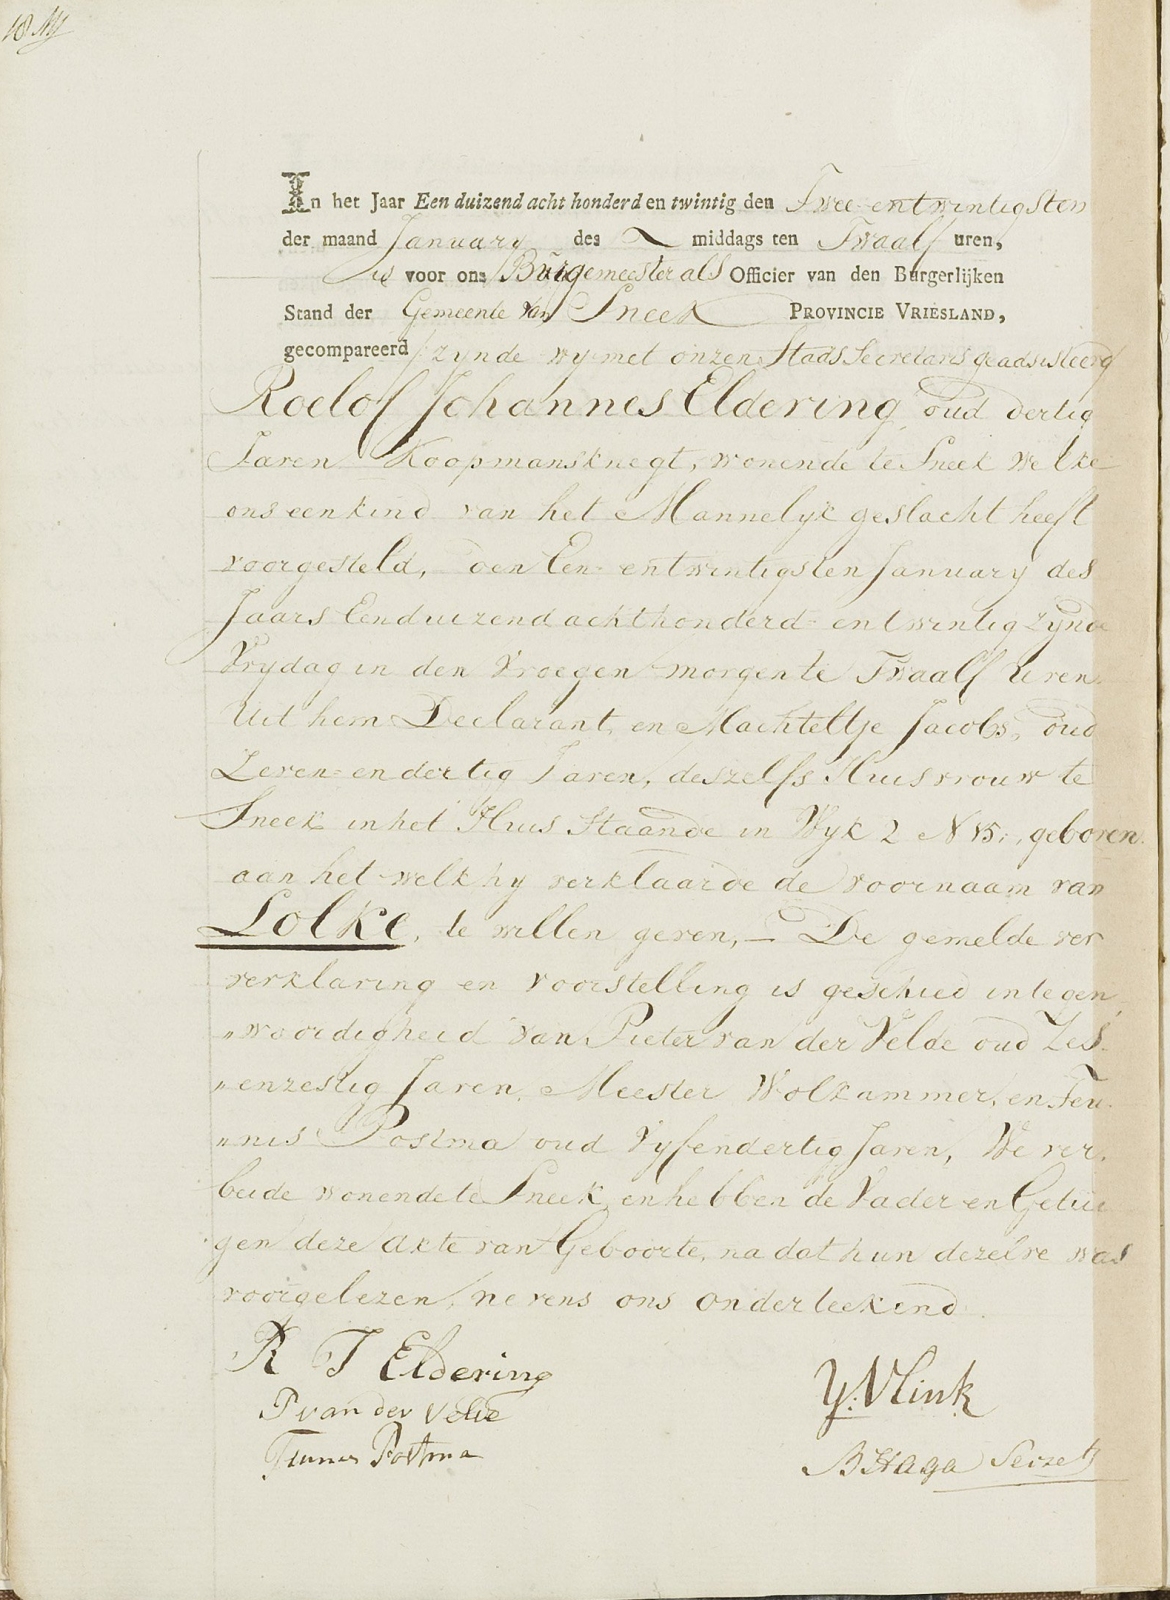 In het Jaar Een duizend acht honderd en twintig den Twee-entwintigsten
der maand January des middags ten Twaalf uren,
is voor ons Burgemeester als Officier van den Burgerlijken
Stand der Gemeente van Sneek PROVINCIE VRIESLAND,
gecompareerd, zynde wy met onzen Stads Secretaris geadsisteerd
Roelof Johannes Eldering, oud dertig
Jaren Koopmansknegt, wonende te Sneek Welke
ons een kind van het Mannelyk geslacht heeft
voorgesteld, den Een-entwintigsten January des
Jaars Eenduizend achthonderd-entwintig zynde
Vrydag in den Vroegen-morgen te Twaalf Uren
Uit hem Declarant, en Machteltje Jacobs, oud
Zeven-en dertig Jaren, deszelfs Huisvrouw te
Sneek in het Huis Staande in Wyk 2 N 15, geboren
aan het welk hy verklaarde de voornaam van
Lolke, te willen geven, — De gemelde ver
verklaring en voorstelling is geschied in tegen
"woordigheid van Pieter van der Velde oud Zes-
"enzestig Jaren, Meester Wolkammer, en Teu-
"nis Postma oud Vyfendertig Jaren, We ver.
beide wonende te Sneek, en hebben de Vader en Getui
gen deze Akte van Geboorte, na dat hun dezelve was
voorgelezen, nevens ons onderteekend
R J Eldering
P van der Velde
Teunis Postma
Y: Vlink
B Haga Secret